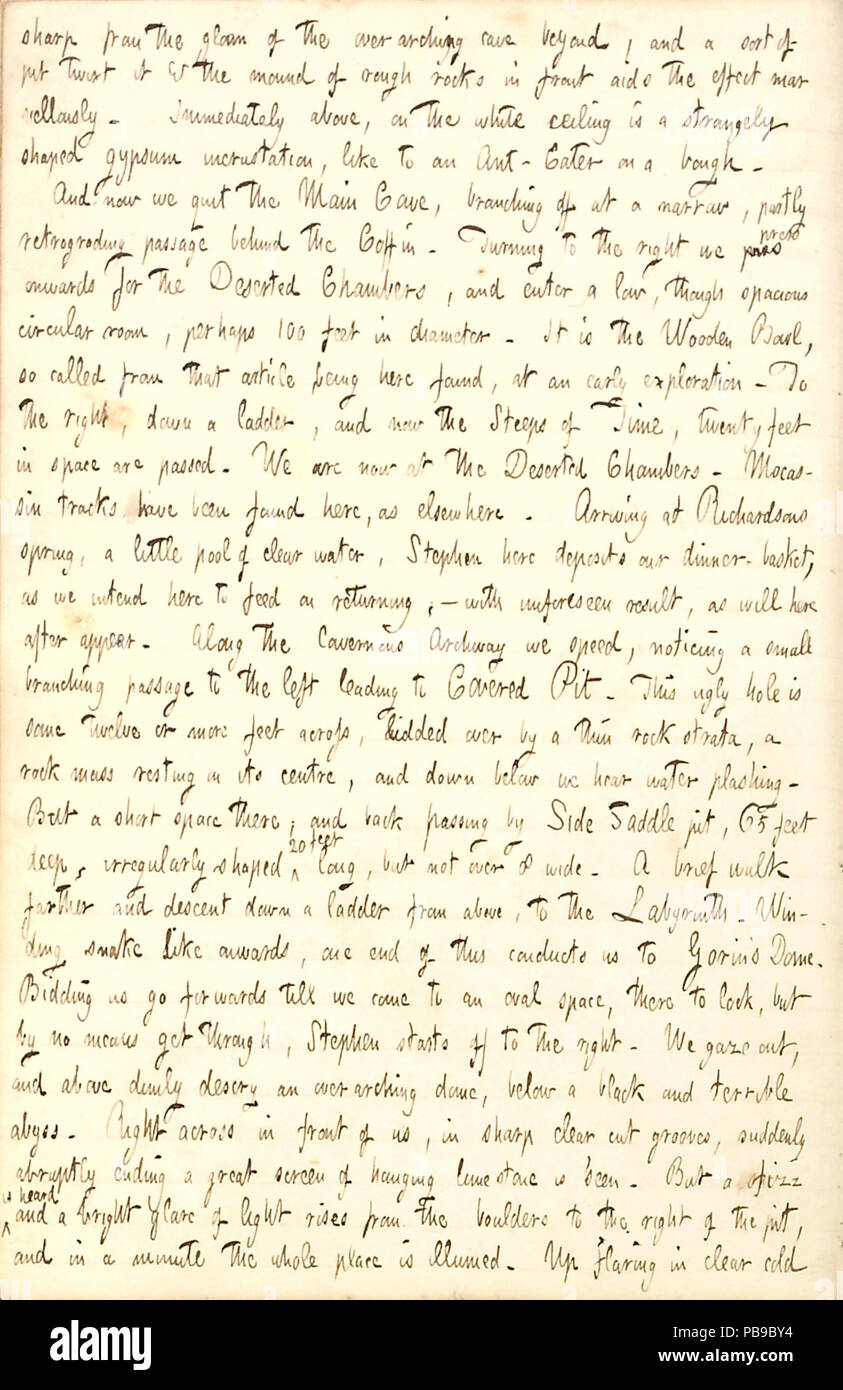 sharp from the gloom of the overarching cave beyond, and a sort of
pit twixt it & the mound of rough rocks in front aids the effect mar
vellously. Immediately above, on the white ceiling is a strangely
shaped gypsum incrustation, like to an Ant-Eater on a bough.
And now we quit the Main Cave, branching off at a narrow, partly
retrograding passage behind the Coffin. Turning to the right we press
onwards for the Deserted Chambers, and enter a low, though spacious
circular room, perhaps 100 feet in diameter. It is the Wooden Bowl,
so called from that article being here found, at an early exploration. To
the right, down a ladder, and now the Steeps of Time, twenty feet
in space are passed. We are now at the Deserted Chambers. Mocas-
sin tracks have been found here, as elsewhere. Arriving at Richardsons
spring, a little pool of clear water, Stephen here deposits our dinner-basket,
as we intend here to feed on returning; — with unforeseen result, as will here
after appear. Along the Cavernous Archway we speed, noticing a small
branching passage to the left leading to Covered Pit. This ugly hole is
some twelve or more feet across, lidded over by a thin rock strata, a
rock mass resting on its centre, and down below we hear water plashing.
But a short space there; and back passing by Side Saddle pit, 65 feet
deep, irregularly shaped 20 feet long, but not over 8 wide. A brief walk
farther and descent down a ladder from above, to the Labyrinth. Win-
ding snake like onwards, one end of this conducts us to Gorin's Dome.
Bidding us go forwards till we come to an oval space, there to look, but
by no means get through, Stephen starts off to the right. We gaze out,
and above dimly descry an overarching dome, below a black and terrible
abyss. Right across in front of us, in sharp clear cut grooves, suddenly
abruptly ending a great screen of hanging limestone is seen. But a fizz
is heard and a bright glare of light rises from the boulders to the right of the pit,
and in a minute the whole place is illumed. Up flaring in clear cold
alamy
Image ID: PB9BY4
www.alamy.com